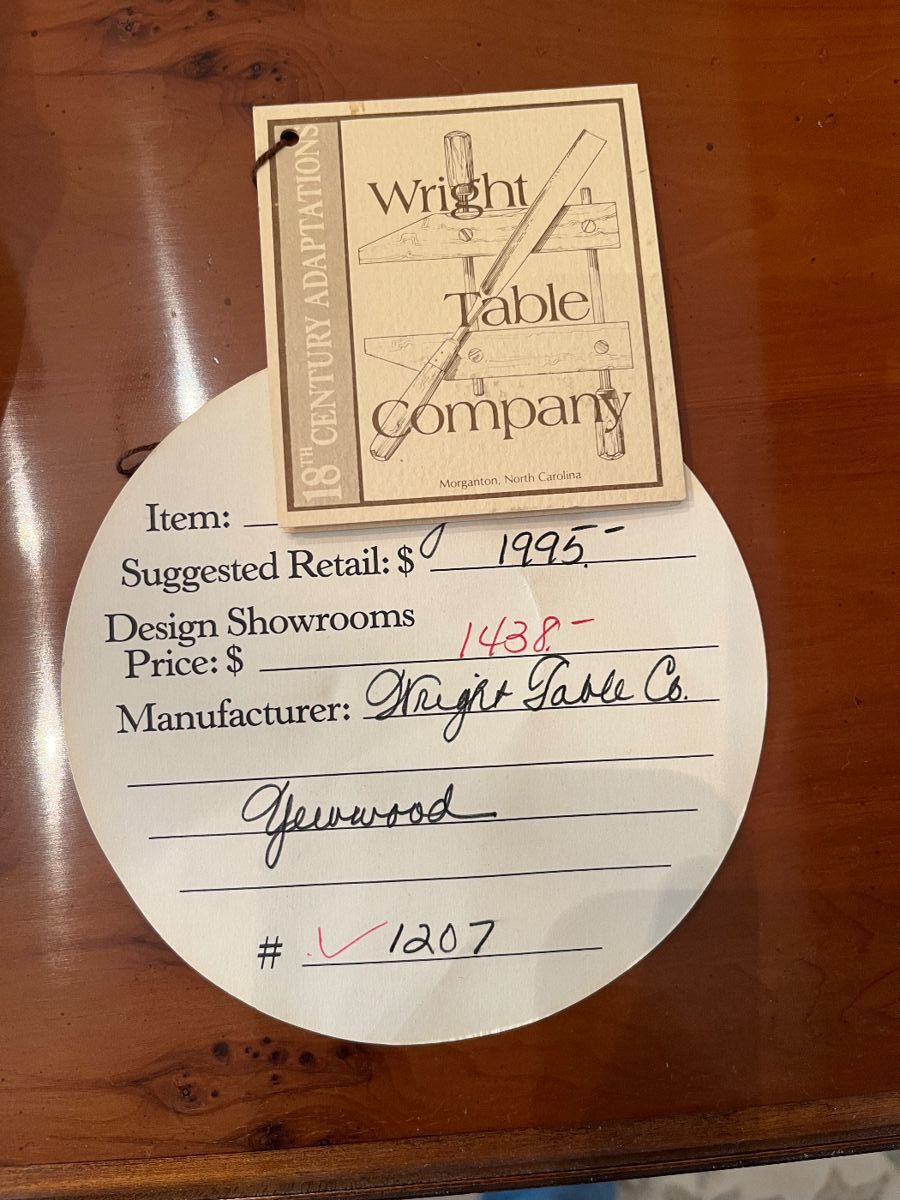 18TH CENTURY ADAPTATIONS
Wright
Table
Company
Morganton, North Carolina
Item:
Suggested Retail: $ 1995.-
Design Showrooms
Price: $ 1438.-
Manufacturer: Wright Table Co.
Yewwood
# ✓ 1207